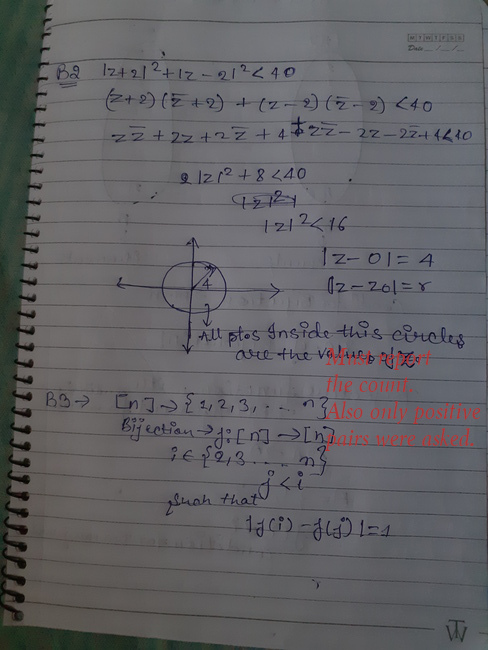 Date
B2 |z+2|² + |z-2|² < 40
(z+2)(z̅+2) + (z-2)(z̅-2) < 40
zz̅ + 2z + 2z̅ + 4 + zz̅ - 2z - 2z̅ + 4 < 40
2|z|² + 8 < 40
|z|² < 16
|z-0| = 4
4
|z-z0| = r
All ptos inside this circles
are the values of z.
Must report
the count.
Also only positive
pairs were asked.
B3 → [n] → {1,2,3, .... n}
Bijection → f: [n] → [n]
i ∈ {2,3 .... n}
j < i
such that
|f(i) - f(j)| = 1